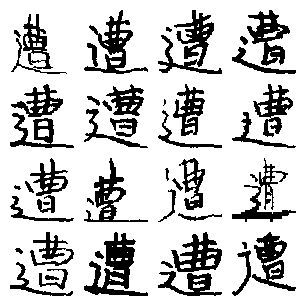 遭遭遭遭
遭遭遭遭
遭遭遭遭
遭遭遭遭